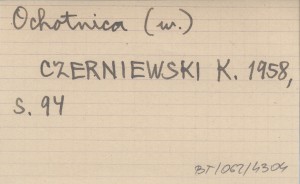 Ochotnica (w.)
CZERNIEWSKI K. 1958,
S. 94
BT/062/4304